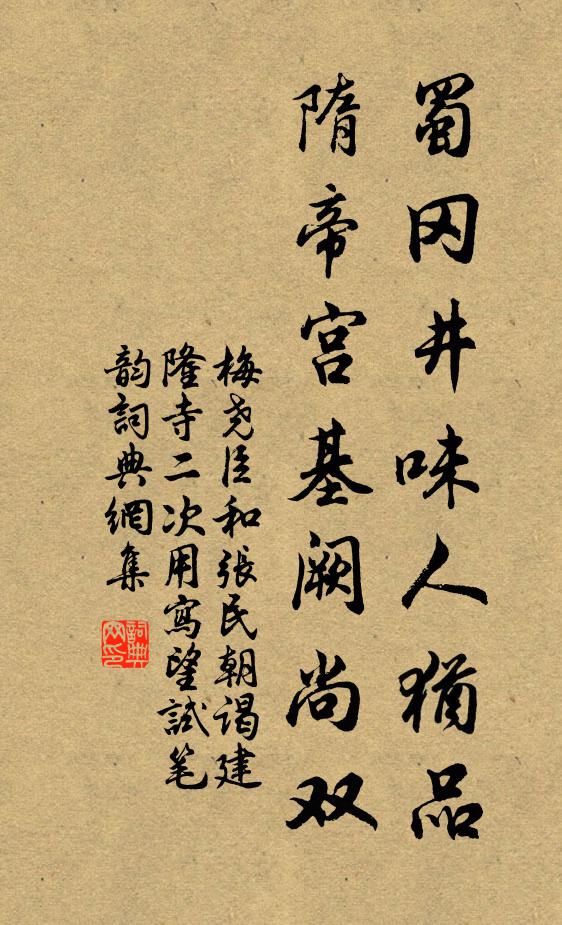 蜀冈井味人犹品
隋帝宫基阙尚双
梅尧臣和張民朝谒建
隆寺二次用寫望試笔
韵詞典網集
詞典网印